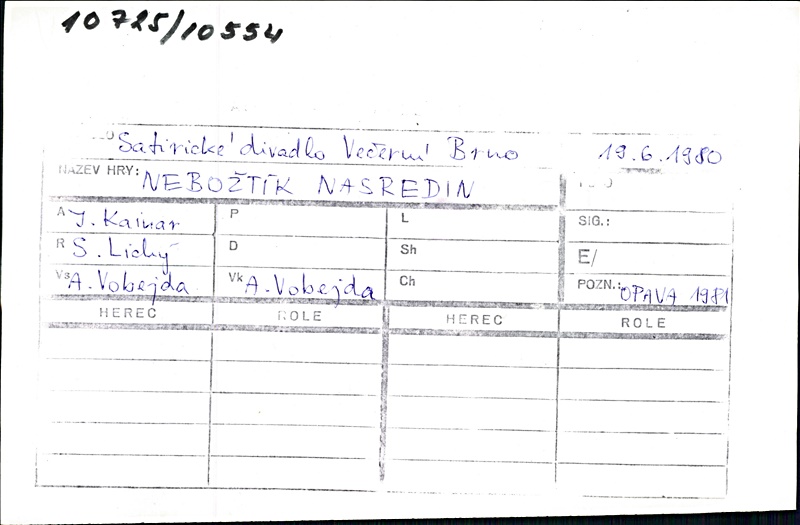 10725/10554
Satirické divadlo Večerní Brno 19.6.1980
NÁZEV HRY: NEBOŽTÍK NASREDIN
A J. Kainar P L SIG.:
R S. Lichý D Sh E/
Vs A. Vobejda Vk A. Vobejda Ch POZN.: OPAVA 1981
HEREC ROLE HEREC ROLE